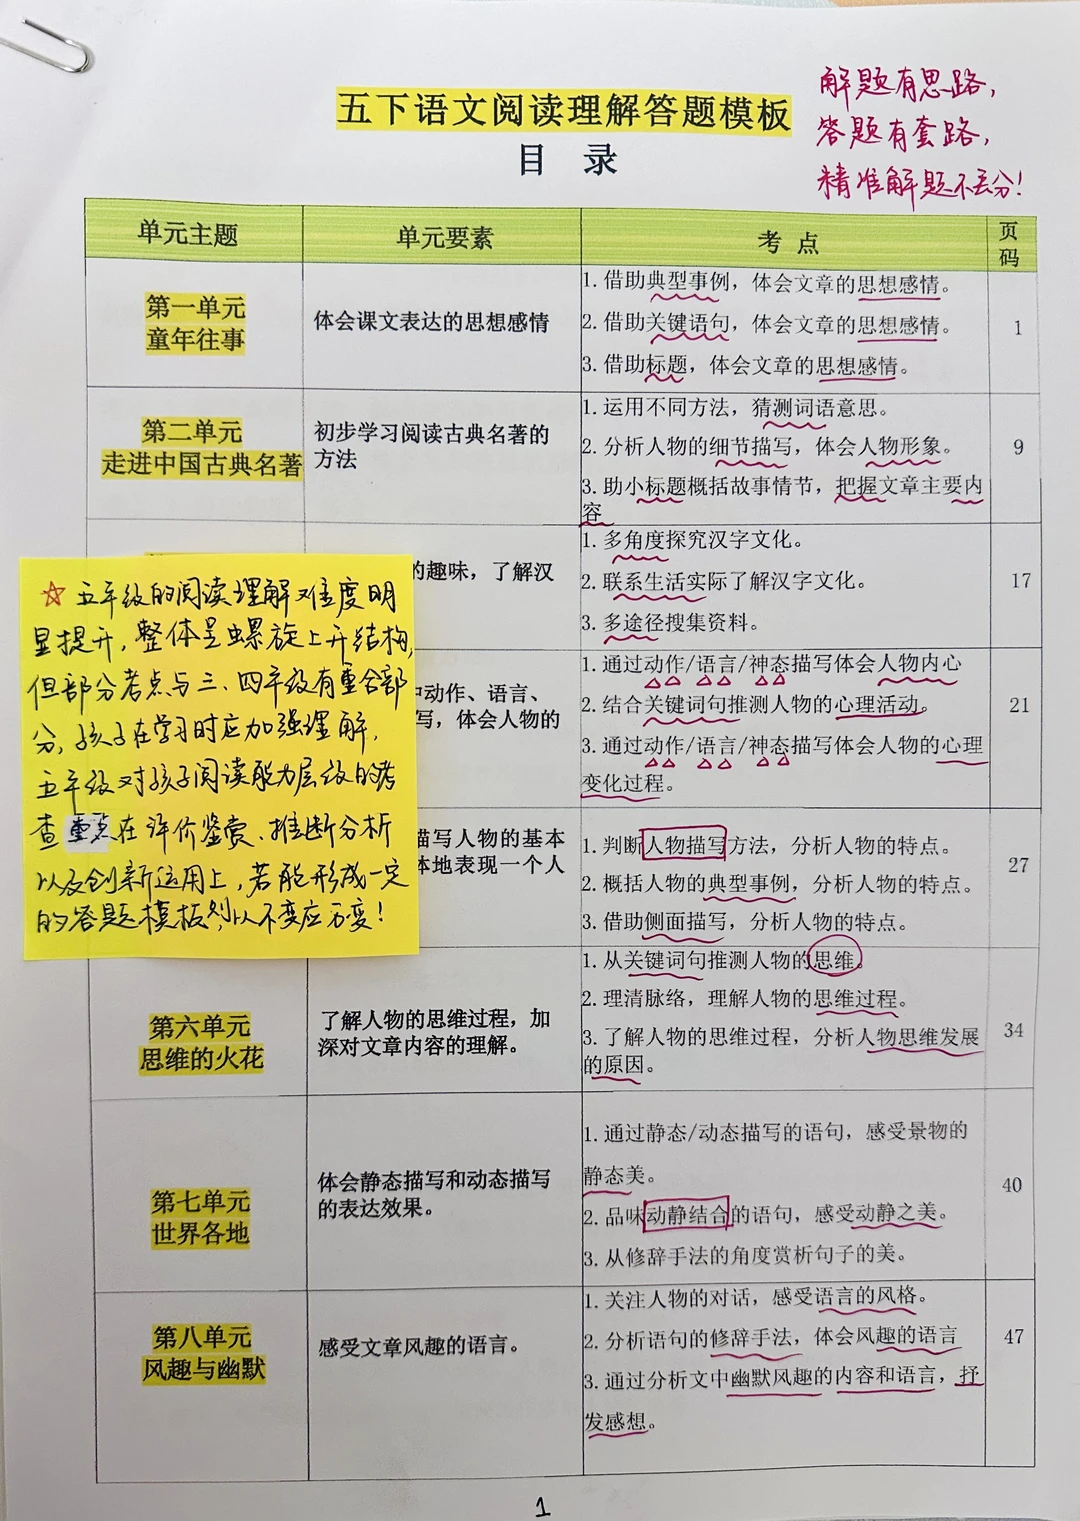 五下语文阅读理解答题模板
目 录
解题有思路,
答题有套路,
精准解题不丢分!
单元主题 单元要素 考 点 页码
第一单元
童年往事
体会课文表达的思想感情
1. 借助典型事例，体会文章的思想感情。
2. 借助关键语句，体会文章的思想感情。
3. 借助标题，体会文章的思想感情。
1
第二单元
走进中国古典名著
初步学习阅读古典名著的
方法
1. 运用不同方法，猜测词语意思。
2. 分析人物的细节描写，体会人物形象。
3. 助小标题概括故事情节，把握文章主要内
容
9
的趣味，了解汉
1. 多角度探究汉字文化。
2. 联系生活实际了解汉字文化。
3. 多途径搜集资料。
17
动作、语言、
写，体会人物的
1. 通过动作/语言/神态描写体会人物内心
2. 结合关键词句推测人物的心理活动。
3. 通过动作/语言/神态描写体会人物的心理
变化过程。
21
描写人物的基本
体地表现一个人
1. 判断人物描写方法，分析人物的特点。
2. 概括人物的典型事例，分析人物的特点。
3. 借助侧面描写，分析人物的特点。
27
☆ 五年级的阅读理解难度明
显提升,整体呈螺旋上升结构,
但部分考点与三、四年级有重合部
分,孩子在学习时应加强理解,
五年级对孩子阅读能力层级的考
查重点在评价鉴赏、推断分析
以及创新运用上,若能形成一定
的答题模板,则以不变应万变!
第六单元
思维的火花
了解人物的思维过程，加
深对文章内容的理解。
1. 从关键词句推测人物的思维。
2. 理清脉络，理解人物的思维过程。
3. 了解人物的思维过程，分析人物思维发展
的原因。
34
第七单元
世界各地
体会静态描写和动态描写
的表达效果。
1. 通过静态/动态描写的语句，感受景物的
静态美。
2. 品味动静结合的语句，感受动静之美。
3. 从修辞手法的角度赏析句子的美。
40
第八单元
风趣与幽默
感受文章风趣的语言。
1. 关注人物的对话，感受语言的风格。
2. 分析语句的修辞手法，体会风趣的语言
3. 通过分析文中幽默风趣的内容和语言，抒
发感想。
47
1